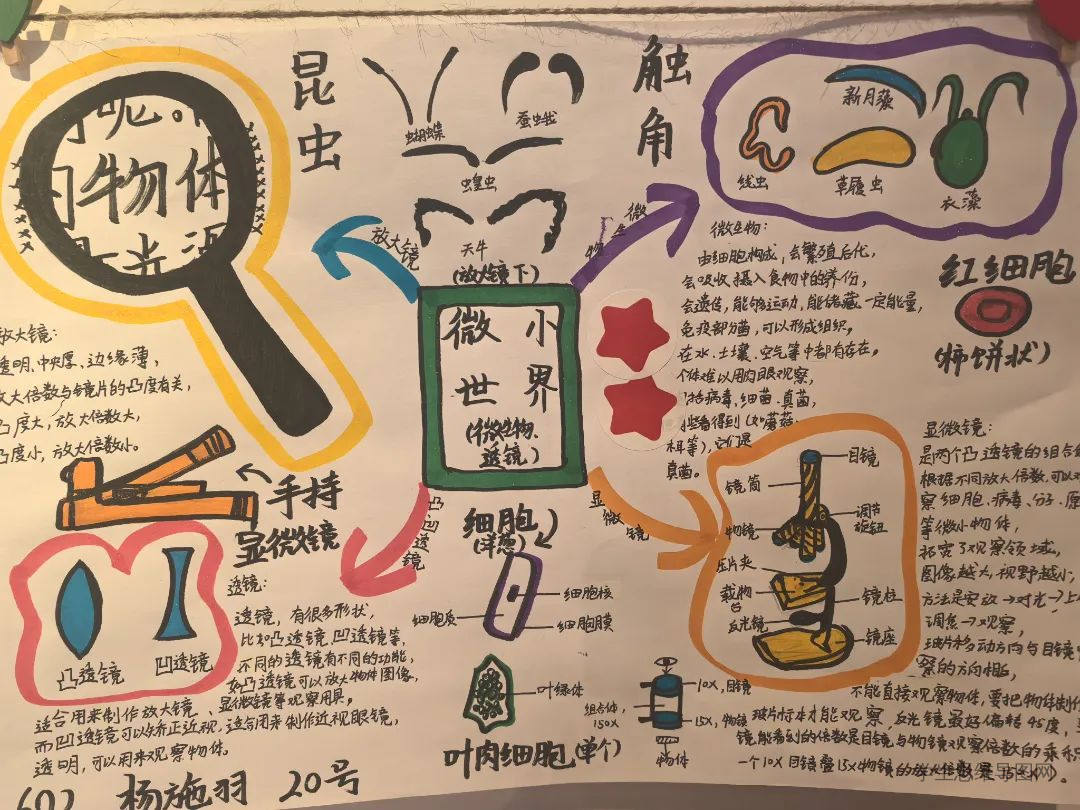 昆虫
触角
蝴蝶
蚕蛾
蝗虫
天牛
(放大镜下)
呢。
物体
放大镜
微生物
新月藻
线虫
草履虫
衣藻
微生物:
由细胞构成,会繁殖后代,
会吸收摄入食物中的养份,
会遗传,能够运动,能储藏一定能量,
免疫部分菌,可以形成组织。
在水、土壤、空气等中都有存在。
个体难以用肉眼观察,
括病毒、细菌、真菌,
些看得到(如蘑菇、
等),它们是
真菌。
红细胞
(柿饼状)
微小
世界
(微生物、
透镜)
放大镜:
透明、中央厚、边缘薄,
放大倍数与镜片的凸度有关,
凸度大,放大倍数大,
凸度小,放大倍数小。
手持
显微镜
凸、凹透镜
显微镜
凸透镜
凹透镜
透镜:
透镜,有很多形状,
比如凸透镜、凹透镜等,
不同的透镜有不同的功能,
如凸透镜可以放大物体图像,
适合用来制作放大镜、显微镜等观察用具。
而凹透镜可以矫正近视,适合用来制作近视眼镜,
透明,可以用来观察物体。
细胞
(洋葱)
细胞核
细胞质
细胞膜
叶绿体
叶肉细胞(单个)
10X,目镜
组合体,
150X
15X,物镜
物体
目镜
镜筒
调节
旋钮
物镜
压片夹
载物
台
镜柱
反光镜
镜座
显微镜:
是两个凸透镜的组合
根据不同放大倍数,可以
察细胞、病毒、分子、原
等微小物体,
拓宽了观察领域,
图像越大,视野越小,
方法是安放→对光→上
调焦→观察,
玻片移动方向与目镜
察的方向相
不能直接观察物体,要把物体制作
玻片标本才能观察,反光镜最好偏转45度,
镜能看到的倍数是目镜与物镜观察倍数的乘积
一个10X目镜叠15X物镜的放大倍数是150X
602 杨施羽 20号